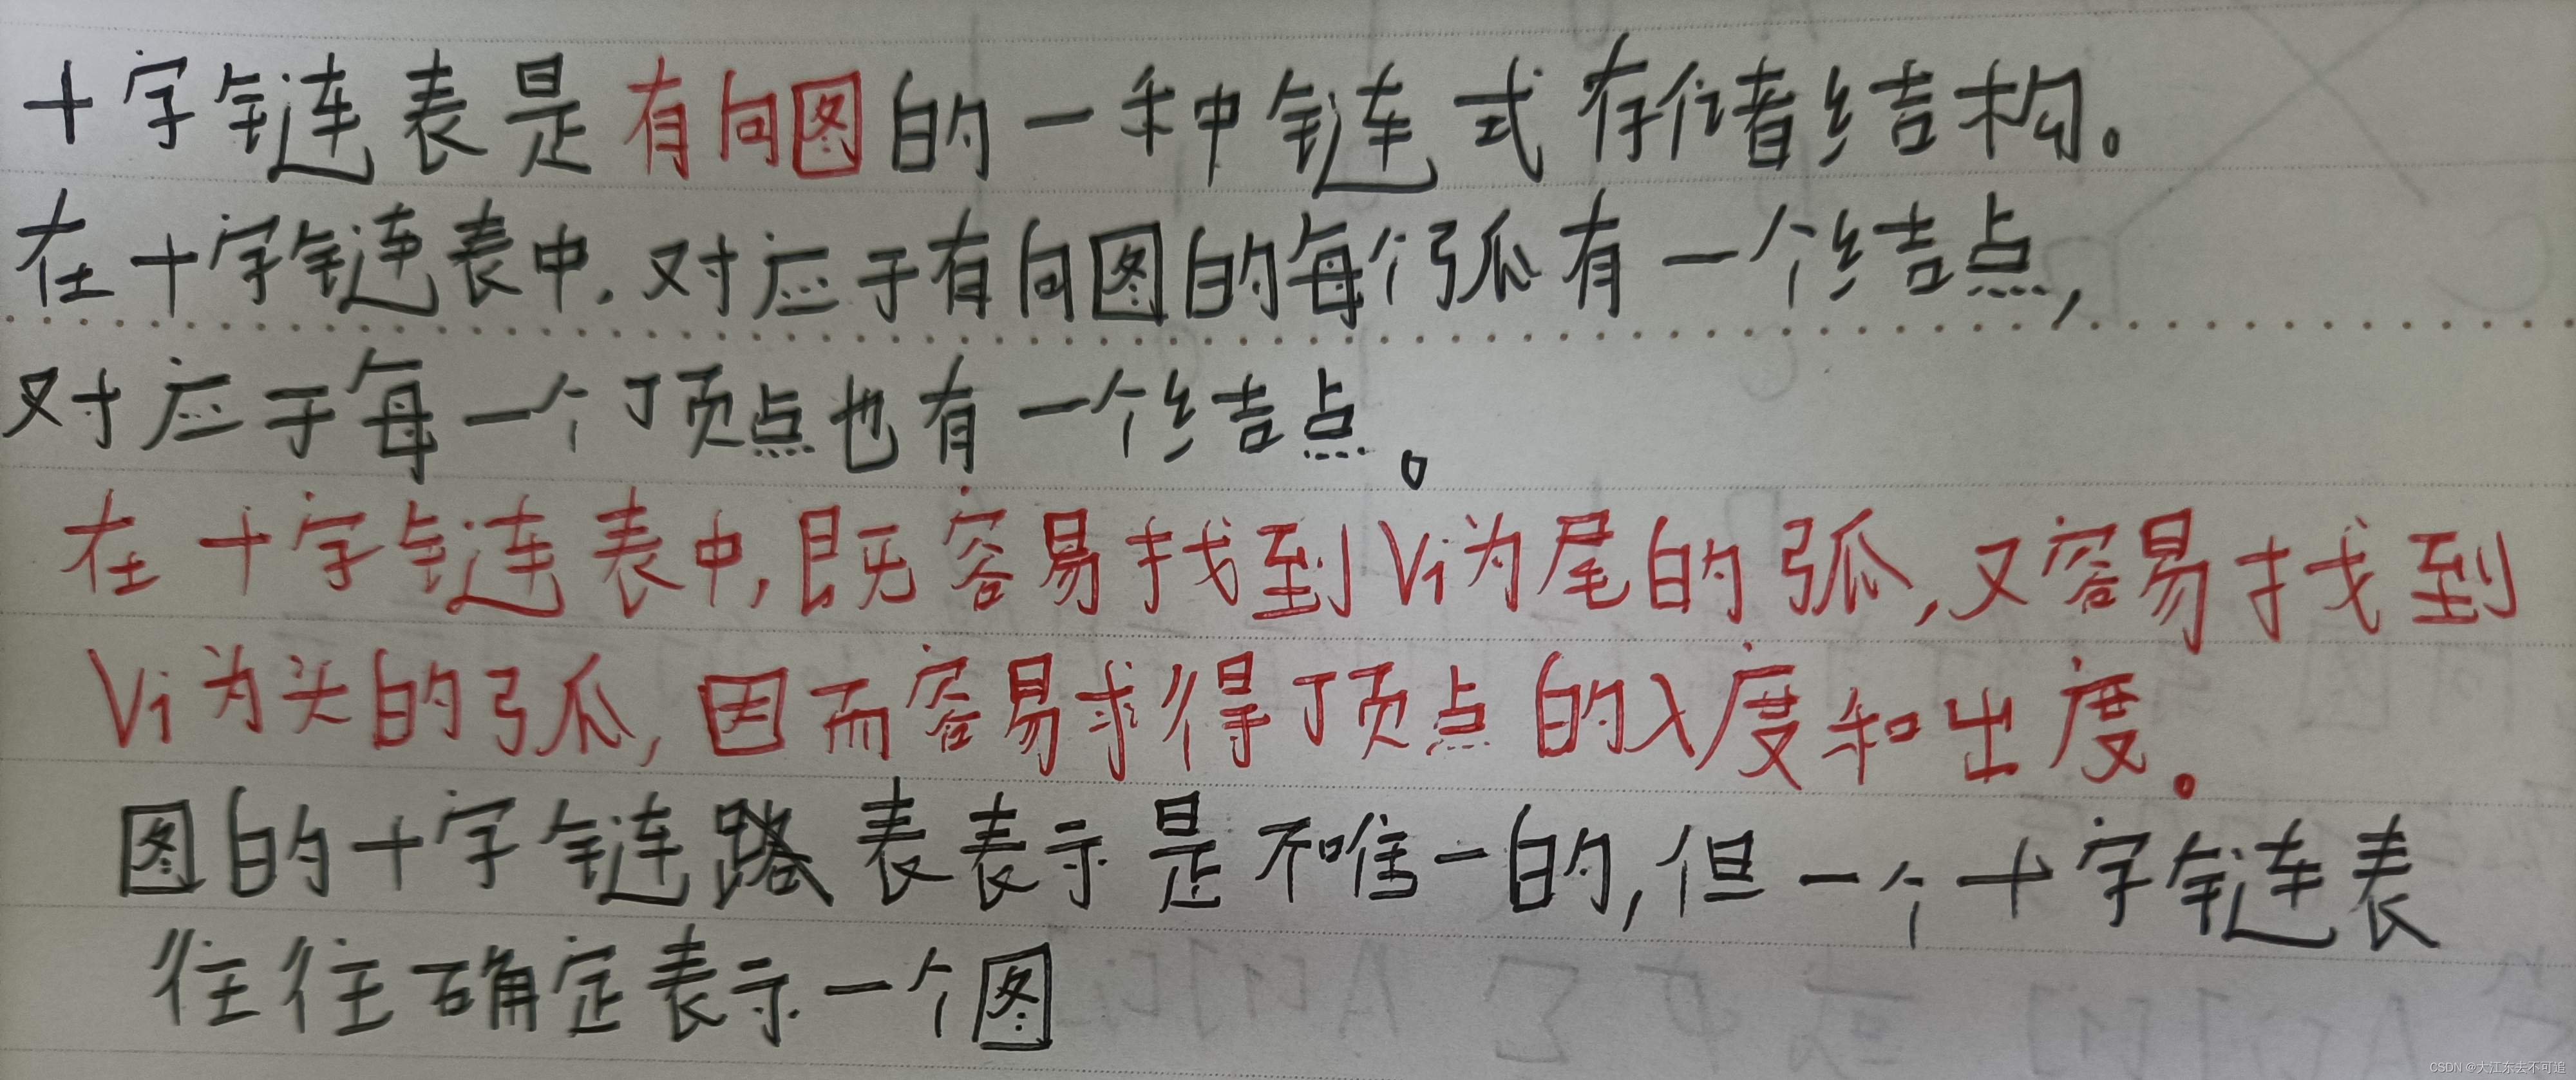 十字链表是有向图的一种链式存储结构。
在十字链表中,对应于有向图的每个弧有一个结点,
对应于每一个顶点也有一个结点。
在十字链表中,既容易找到Vi为尾的弧,又容易找到
Vi为头的弧,因而容易求得顶点的入度和出度。
图的十字链表表示是不唯一的,但一个十字链表
往往确定表示一个图
CSDN @大江东去不可追